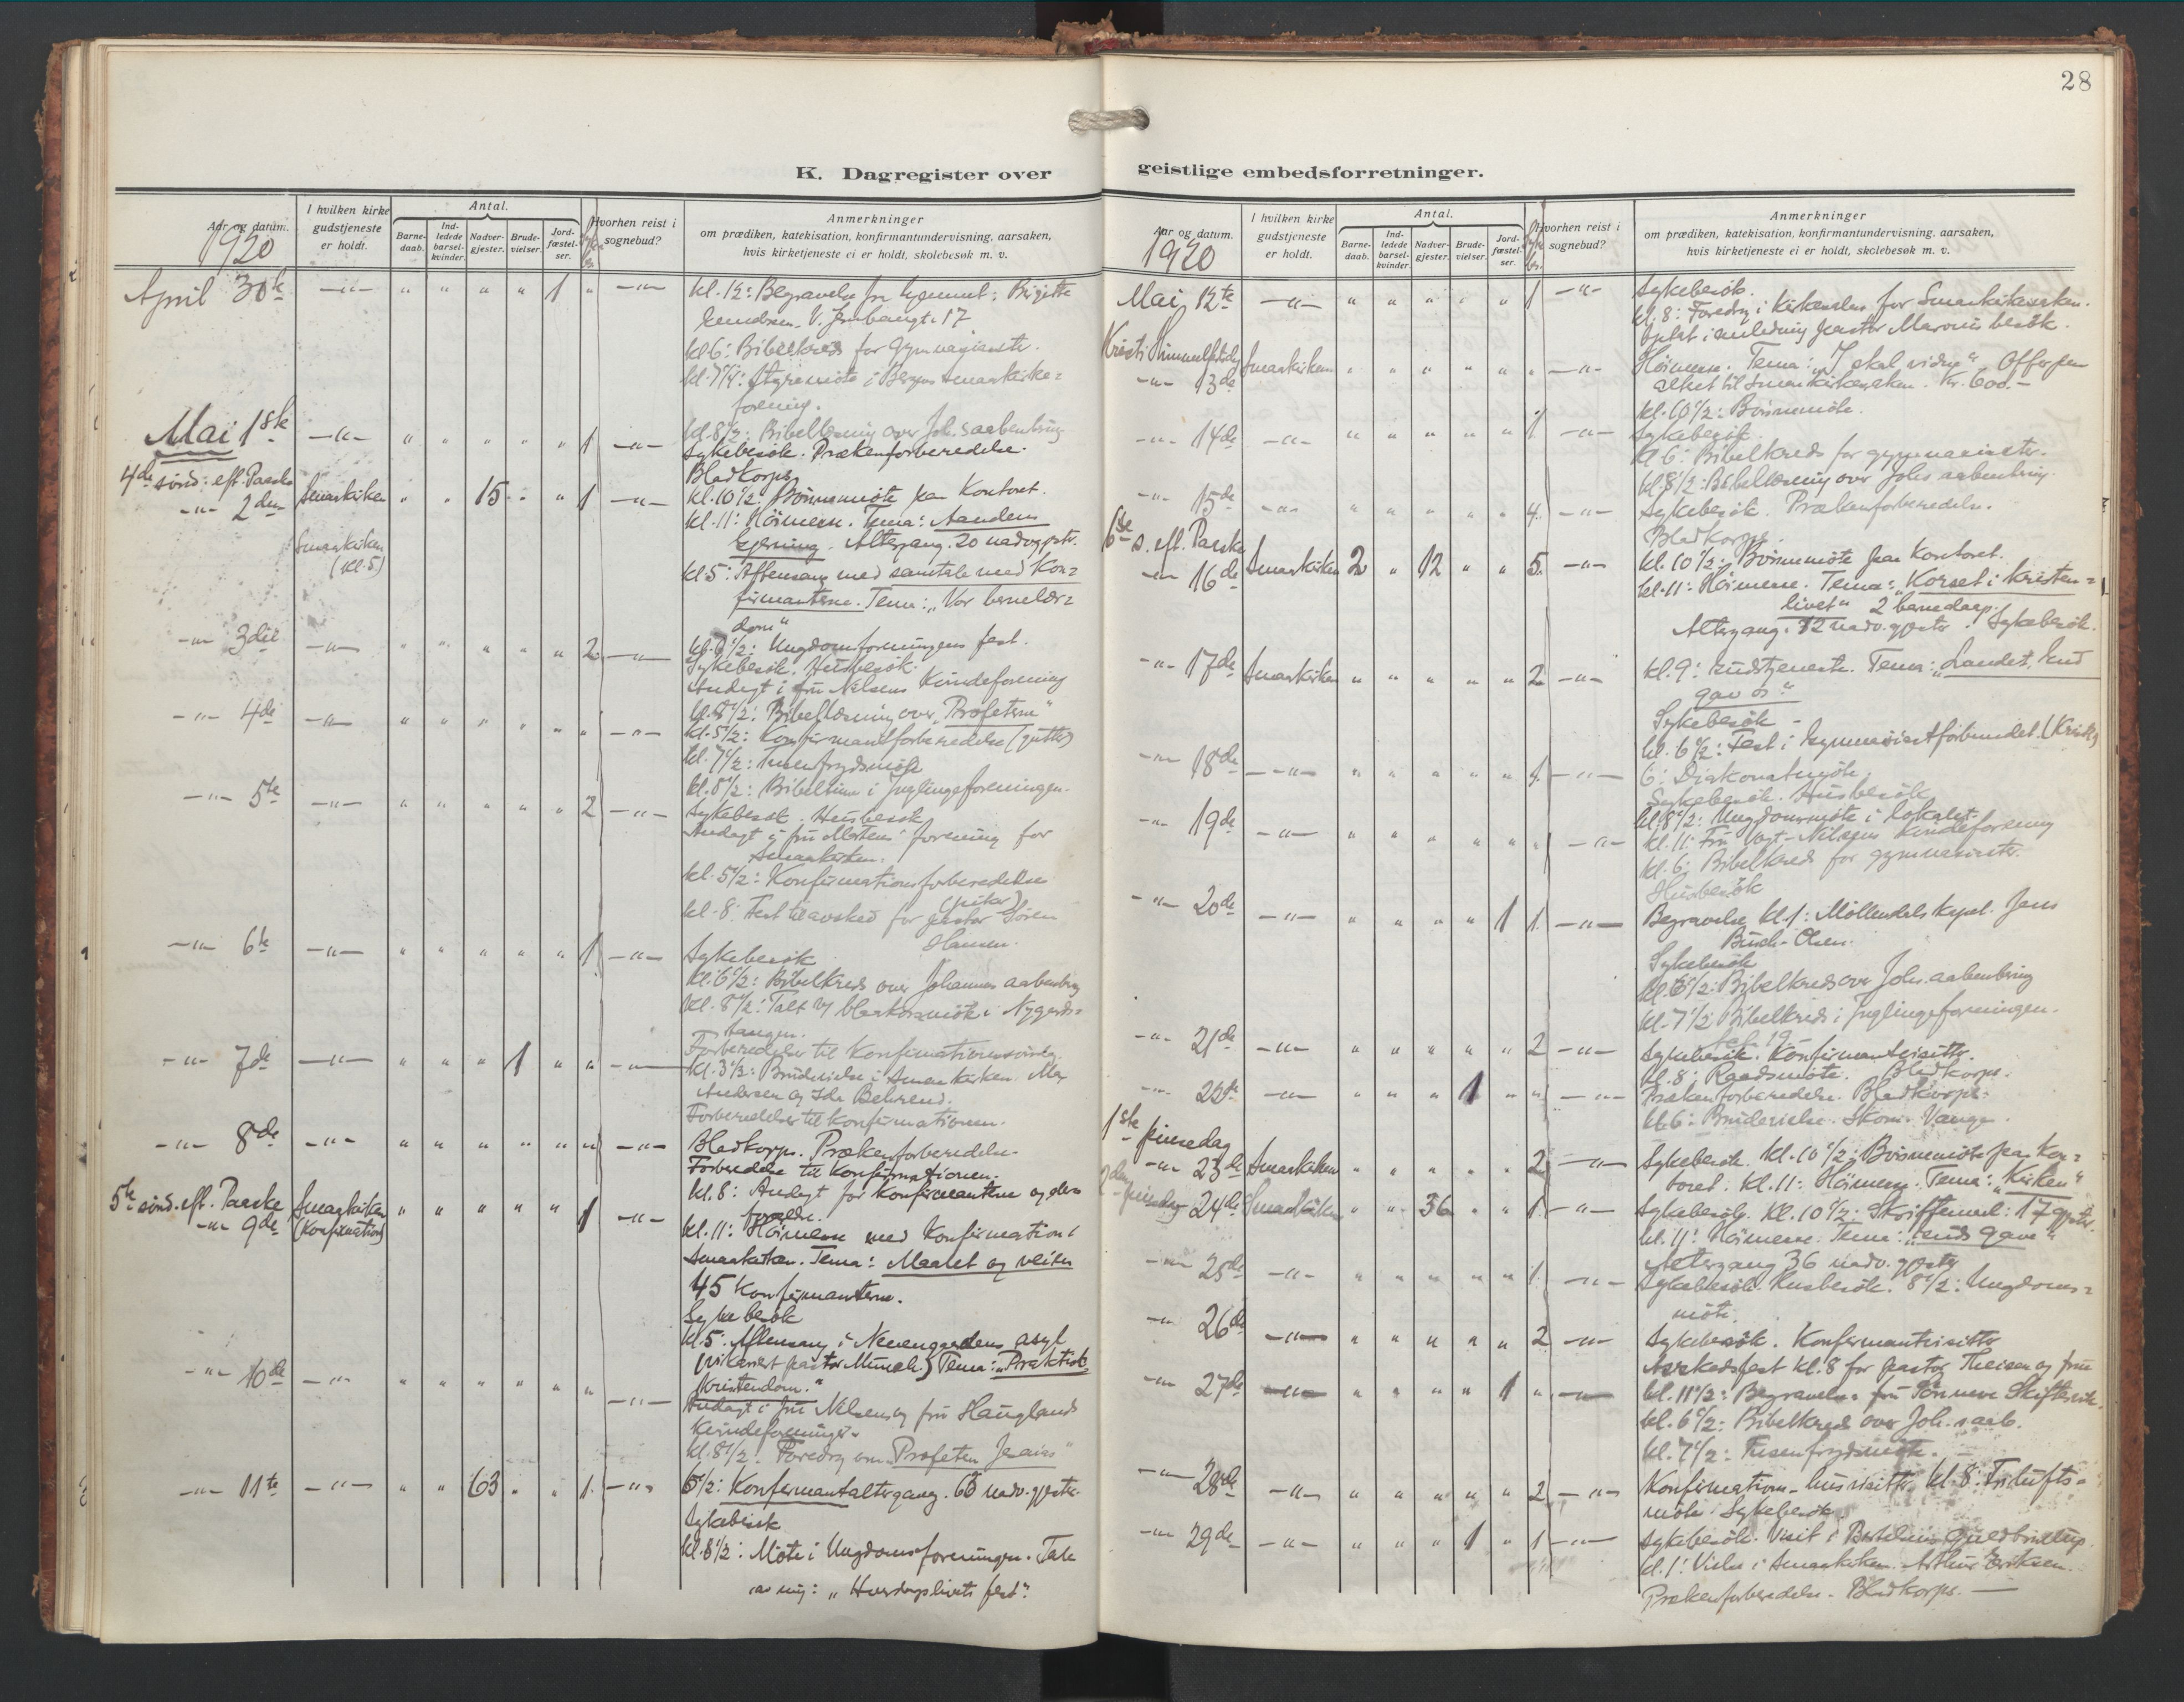 28
K. Dagregister over
geistlige embedsforretninger.
Aar og datum.
1920
I hvilken kirke gudstjeneste er holdt.
Antal.
Barne-daab.
Ind-ledede barsel-kvinder.
Nadver-gjester.
Brude-vielser.
Jord-fæstel-ser.
Hvorhen reist i sognebud?
Anmerkninger
om prædiken, katekisation, konfirmantundervisning, aarsaken,
hvis kirketjeneste ei er holdt, skolebesøk m. v.
April 30te -"- " " " " 1 " -"- kl. 12: Begravelse fra hjemmet: Birgitte
V. 17
kl 6: Bibelkreds for Gymnasiaster.
kl. 7 1/4: Styremöte i Bergens Smaakirke=
forening.
kl. 8 1/2: Bibellæsning over Joh.s aabenbring
Mai 1ste -"- " " " " " 1 -"- Sykebesök. Prækenforberedelse.
Bladkorps
4de sönd. eft. Paaske
-"- 2den Smaakirken " " 15 " " 1 -"- kl. 10 1/2: Bönnemöte paa Kontoret.
kl. 11: Höimesse. Tema: Aandens
gjerning. Altergang. 20 nadv.gjester.
Smaakirken
(kl. 5)
kl 5: Aftensang med samtale med Kon=
firmanterne. Tema: "Vor barnelær=
dom"
kl. 6 1/2: Ungdomsforeningens fest.
-"- 3die -"- " " " " " 2 -"- Sykebesök. Husbesök.
Andagt i fru Nilsens Kvindeforening
kl. 8 1/2: Bibellæsning over "Profeterne"
-"- 4de -"- " " " " " " -"- kl. 5 1/2: Konfirmantforberedelse (gutter)
kl. 7 1/2:
kl. 8 1/2: Bibeltime i Ynglingeforeningen.
-"- 5te -"- " " " " " 2 -"- Sykebesök. Husbesök
Andagt i fru Mortens forening for
Smaakirken.
kl. 5 1/2: Konfirmationsforberedelse
(piker)
kl. 8: Fest til avsked for pastor Sören
Hansen.
-"- 6te -"- " " " " " 1 -"- Sykebesök
kl. 6 1/2: Bibelkreds over Johannes aabenbring
kl. 8 1/2: Talt v/ blaakorsmöte i Nygaards=
tangen.
Forberedelse til Konfirmationssöndag.
-"- 7de -"- " " " 1 " " -"- kl. 3 1/2: Brudevielse i Smaakirken. Max
Andersen og Ida Behrend.
Forberedelse til Konfirmationen.
-"- 8de -"- " " " " " " -"- Bladkorps. Prækenforberedelse.
Forberedelse til Konfirmationen.
kl. 8: Andagt for Konfirmanterne og deres
forældre.
5te sönd. eft. Paaske
-"- 9de Smaakirken
(Konfirmation) " " " " " 1 -"- kl. 11: Höimesse med Konfirmation i
Smaakirken. Tema: Maalet og veien
45 Konfirmanterne.
Sykebesök
kl 5: Aftensang i Nevengaardens asyl
(vikariert pastor Munch.) Tema: "Praktisk
Kristendom."
-"- 10de -"- " " " " " " -"- Andagt i fru Nilsens og fru Hauglands
Kvindeforeninger.
kl. 8 1/2: Foredrag om "Profeten Jesaias"
-"- 11te -"- " " 63 " " 1 -"- 6 1/2: Konfirmantaltergang. 63 nadv.gjester.
Sykebesök
kl. 8 1/2: Möte i Ungdomsforeningen. Tale
av mig: "Hverdagslivets fest".
Aar og datum.
1920
I hvilken kirke gudstjeneste er holdt.
Antal.
Barne-daab.
Ind-ledede barsel-kvinder.
Nadver-gjester.
Brude-vielser.
Jord-fæstel-ser.
Hvorhen reist i sognebud?
Anmerkninger
om prædiken, katekisation, konfirmantundervisning, aarsaken,
hvis kirketjeneste ei er holdt, skolebesøk m. v.
Mai 12te -"- " " " " " 1 -"- Sykebesök.
kl. 8: Foredrag i Kirkesalen for Smaakirkesaken.
i anledning pastor besök.
Kristi Himmelfartsdag
-"- 13de Smaakirken " " " " " " -"- Höimesse. Tema: "I skal vidne" Offer paa
altret til Smaakirkesaken. Kr. 600.-
kl. 10 1/2: Bönnemöte.
-"- 14de -"- " " " " " 1 -"- Sykebesök.
kl 6: Bibelkreds for gymnasiaster.
kl. 8 1/2: Bibellæsning over Johs aabenbring
-"- 15de -"- " " " " " 4 -"- Sykebesök. Prækenforberedelse.
Bladkorps.
6te s. eft. Paaske
-"- 16de Smaakirken 2 " 12 " " 5 -"- kl. 10 1/2: Bönnemöte paa Kontoret.
kl. 11: Höimesse. Tema: "Korset i Kristen=
livet" 2 barnedaap.
Altergang. 12 nadv.gjester. Sykebesök.
-"- 17de Smaakirken " " " " " 2 -"- kl. 9: Gudstjeneste. Tema: "Landet, Gud
gav os."
Sykebesök -
kl. 6 1/2: Fest i Gymnasiastforbundet (Kristelig)
-"- 18de -"- " " " " " 1 -"- 6: Diakonatmöte
Sykebesök. Husbesök
kl. 8 1/2: Ungdomsmöte i lokalet.
-"- 19de -"- " " " " " " -"- kl. 11: Fru Vogt-Nilsens Kvindeforening
kl. 6: Bibelkreds for gymnasiaster.
Husbesök
-"- 20de -"- " " " " 1 1 -"- Begravelse kl. 1: Möllendals kapel. Jens
Busch-Olsen.
Sykebesök
kl. 6 1/2: Bibelkreds over Johs. aabenbring
kl. 7 1/2 Bibelkreds i Ynglingeforeningen.
-"- 21de -"- " " " " " 2 -"- Sykebesök. Konfirmantvisitter.
kl. 8: Raadsmöte. Bladkorps.
-"- 22de -"- " " " 1 " " -"- Prækenforberedelse. Bladkorps.
kl. 6: Brudevielse. Skom. Vange.
1ste pinsedag
-"- 23de Smaakirken " " " " " 2 -"- Sykebesök. kl. 10 1/2: Bönnemöte paa Kon=
toret. kl. 11: Höimesse. Tema: "Kirken"
2den pinsedag 24de Smaakirken " " 36 " " 1 -"- Sykebesök. kl. 10 1/2: Skriftemaal: 17 gjester.
kl. 11: Höimesse. Tema: "Guds gave"
Altergang 36 nadv.gjester
-"- 25de -"- " " " " " 1 -"- Sykebesök. Husbesök. 8 1/2: Ungdoms=
möte.
-"- 26de -"- " " " " " 2 -"- Sykebesök. Konfirmantvisitter
Avskedsfest kl. 8 for pastor Theisen og frue
-"- 27de -"- " " " " 1 " -"- kl. 11 1/2: Begravelse:
kl. 6 1/2: Bibelkreds over Joh.s aab.
kl. 7 1/2:
-"- 28de -"- " " " " " 2 -"- Konfirmations-husvisitter. kl. 8: Frilufts=
möte. Sykebesök.
-"- 29de -"- " " " 1 " 1 -"- Sykebesök. Visit i
kl. 1: Vielse i Smaakirken. Arthur Eriksen.
Prækenforberedelse. Bladkorps. —